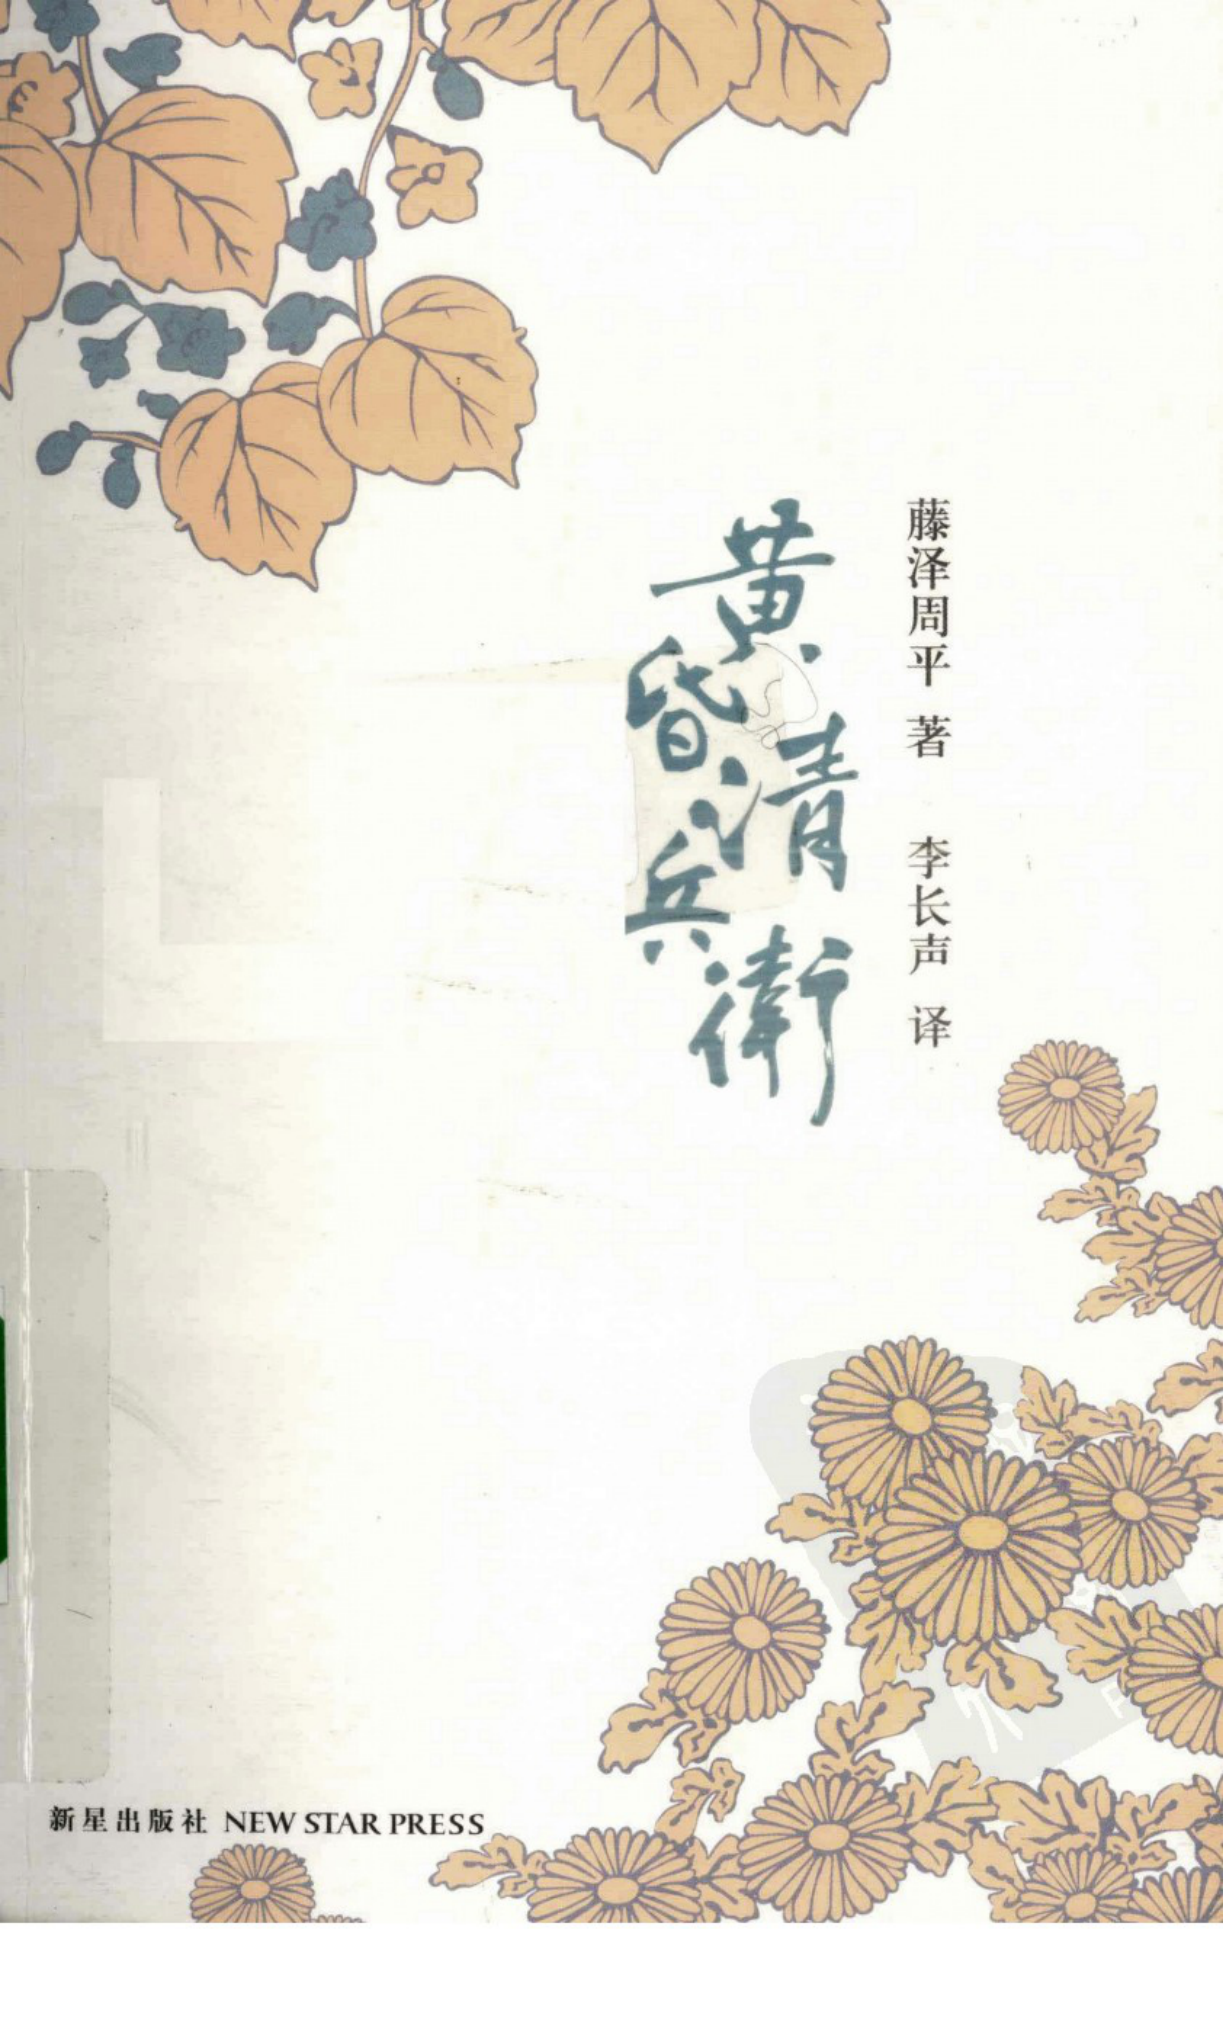 藤泽周平 著 李长声 译
黄昏清兵衛
新星出版社 NEW STAR PRESS